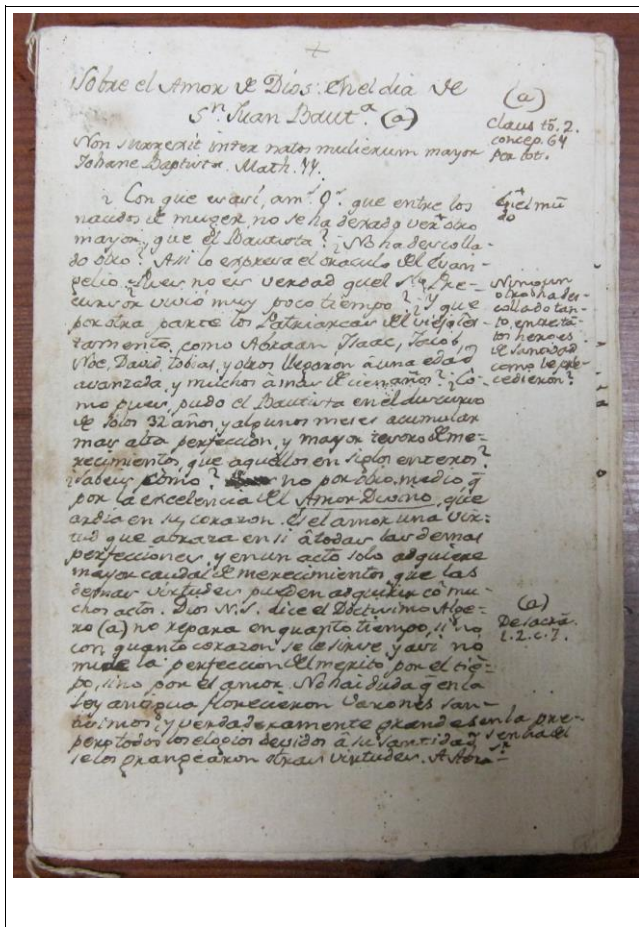 +
Sobre el Amor de Dios: En el dia de
Sn. Juan Bauta. (a)
Non surrexit inter natos mulierum mayor
Johane Baptista. Math. 11.
¿Con que es asi, ams. Os. que entre los
nacidos de muger, no se ha dexado ver otro
mayor, que el Bautista? ¿No ha descolla-
do otro? Asi lo expresa el oraculo del Evan-
gelio. Pues no es verdad que el Sto. Pre-
cursor vivió muy poco tiempo? ¿Y que
por otra parte los Patriarcas del viejo tes-
tamento, como Abraan, Isaac, Jacob,
Noe, David, Tobias, y otros llegaron â una edad
avanzada, y muchos â mas de cien años? ¿Co-
mo pues pudo el Bautista en el discurso
de solos 32 años, y algunos meses acumular
mas alta perfeccion, y mayor tesoro de me-
recimientos, que aquellos en siglos enteros?
¿Sabeis como? no por otro medio, q̃
por la excelencia del Amor Divino, que
ardia en su corazon. Es el amor una vir-
tud que abraza en si â todas las demas
perfecciones, y en un acto solo adquiere
mayor caudal de merecimientos, que las
demas virtudes pueden adquirir cõ mu-
chos actos. Dios N.S. dice el Doctisimo Alge-
ro (a) no repara en quanto tiempo, si no
con quanto corazon se le sirve y asi no
mide la perfeccion del merito por el tiẽ-
po, sino por el amor. No hai duda q̃ en la
Ley antigua florecieron Varones san-
tisimos, y verdaderamente grandes en la pre-
pero todos los elogios devidos â su santidad sencia del Sr.
se los grangearon otras virtudes. A Abra-
(a)
Claus tõ. 2.
concep. 64
por tot.
en el mũ
do
Ningun
otro ha des-
collado tan-
to, entre tã-
tos heroes
de santidad
como le pre-
cedieron?
(a)
De sacrã.
l. 2. c. 3.